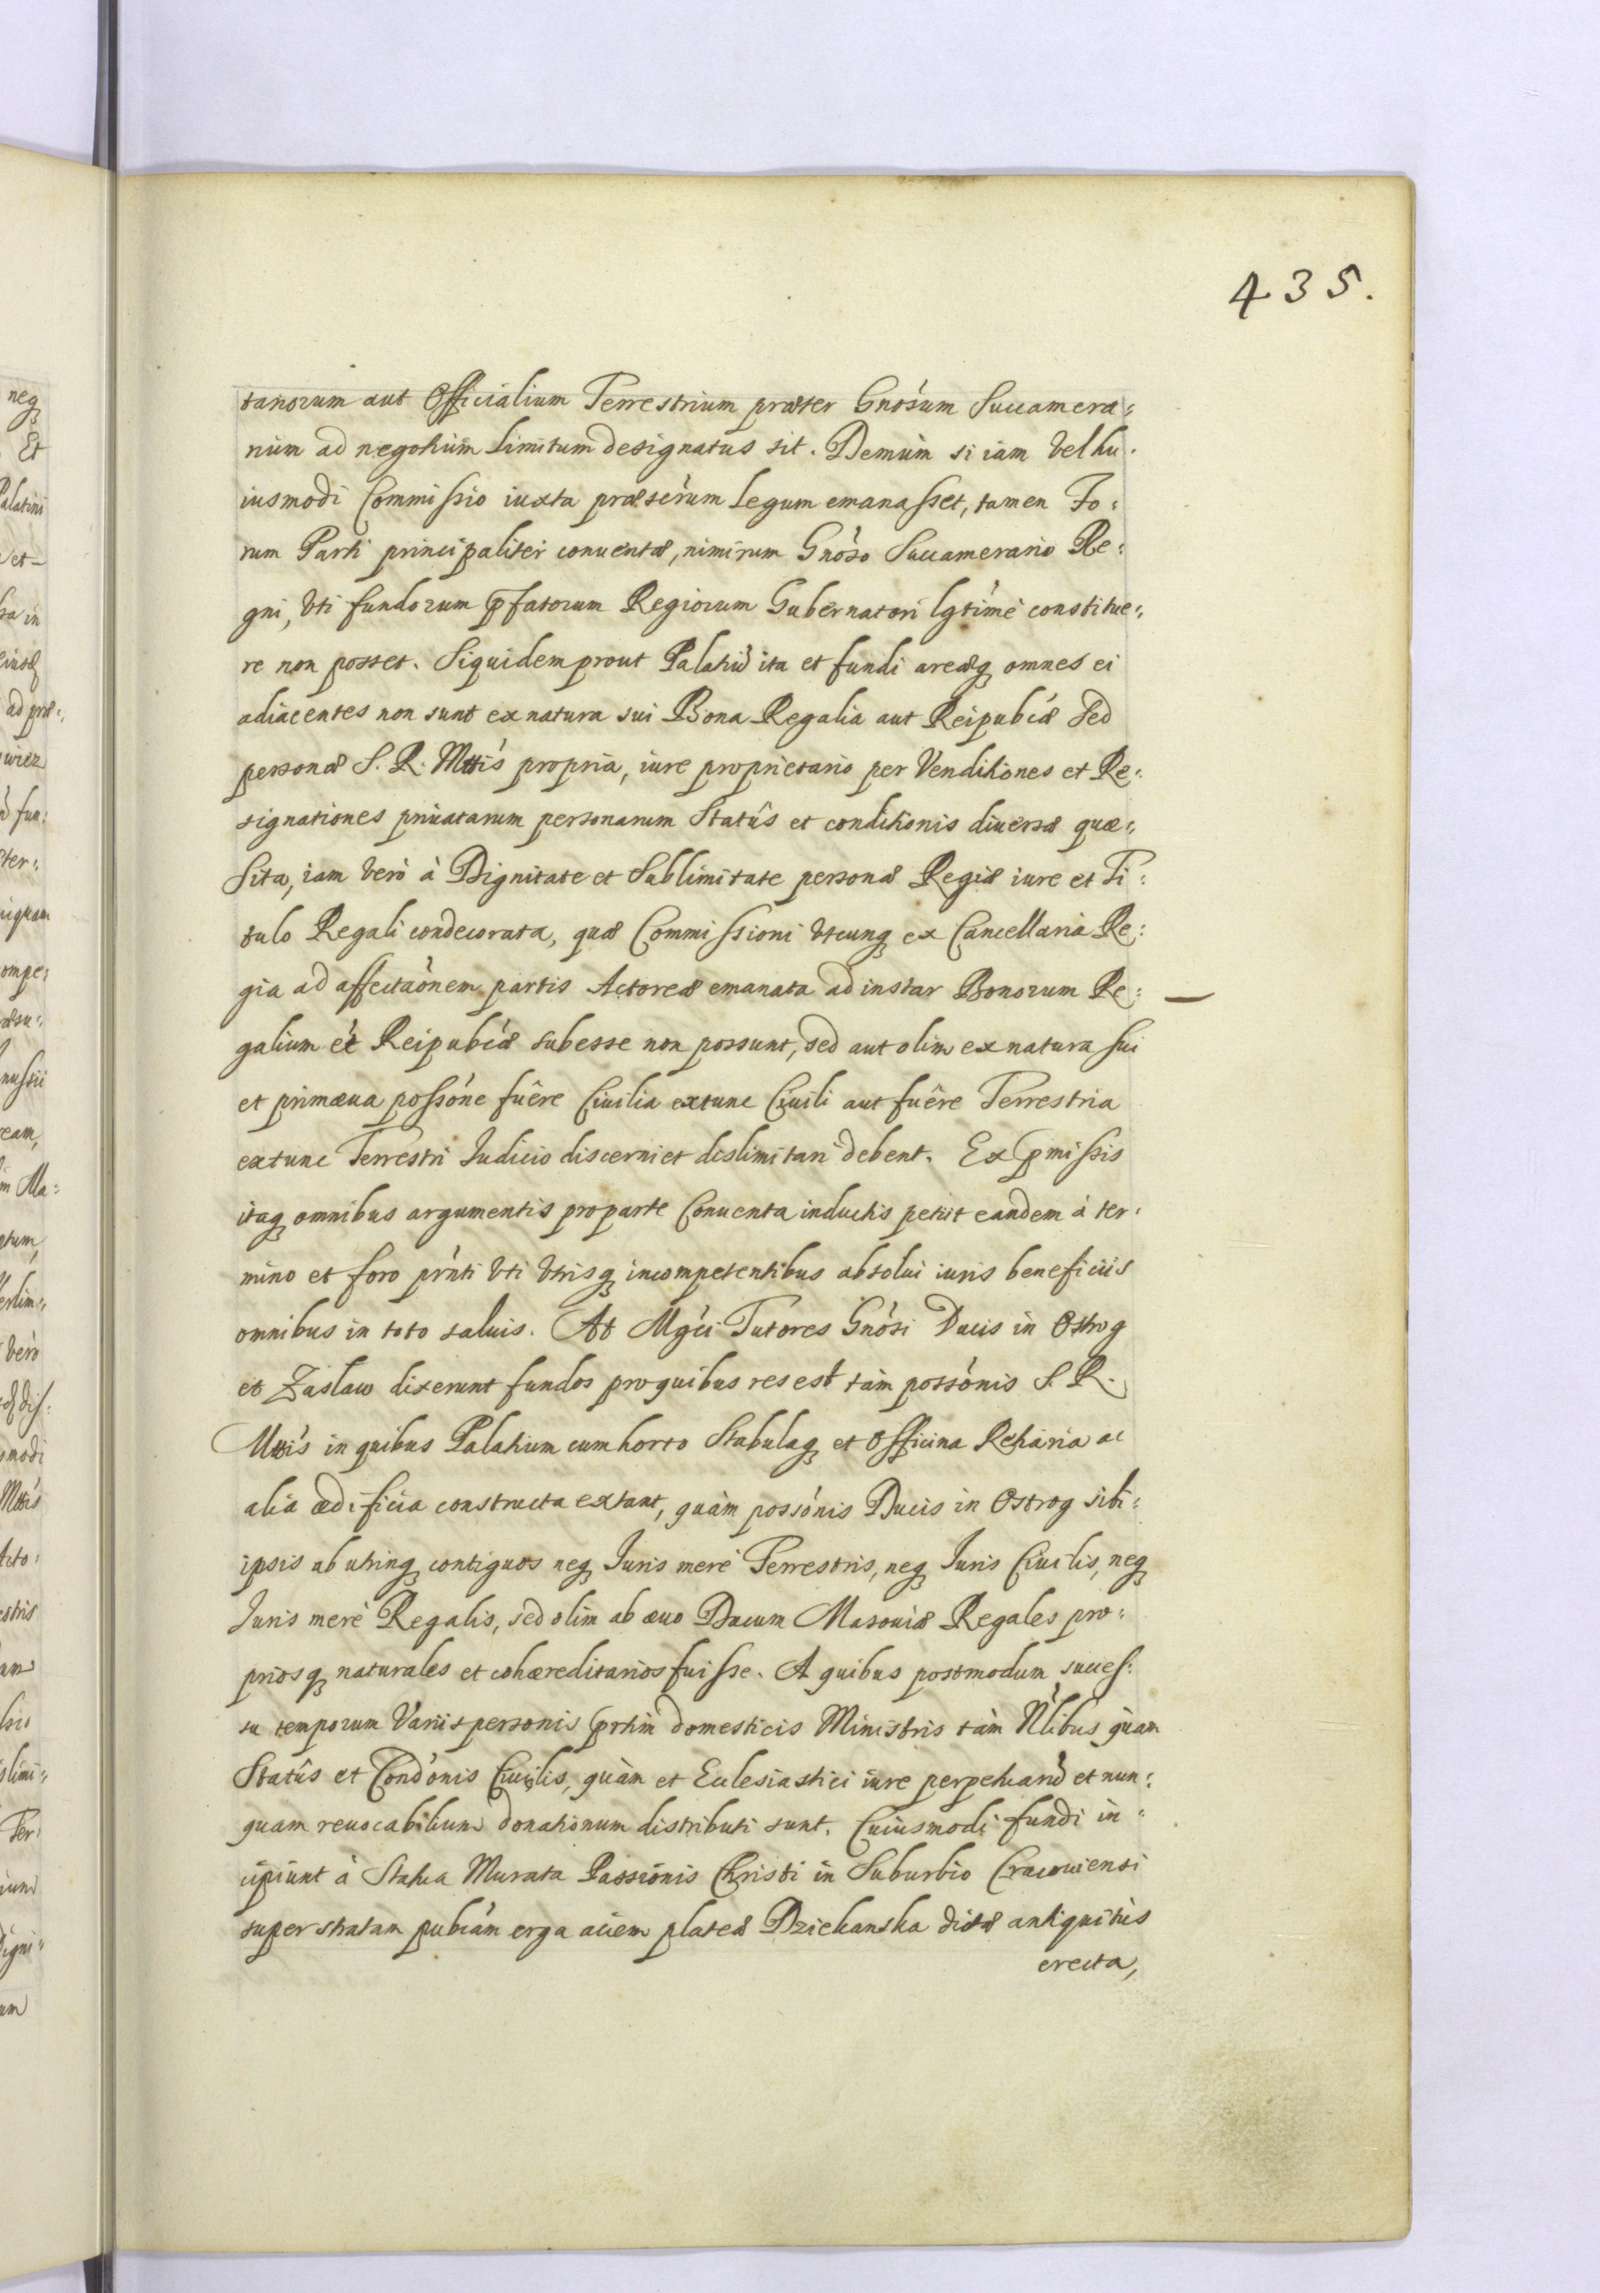 435.
tanorum aut Officialium Terrestrium præter Gnósum Succamera:
rium ad negotium Limitum designatus sit. Demùm si iam Vel hu:
iusmodi Commissio iuxta præscrúm Legum emanasset, tamen Fo:
rum Parti principaliter conuentæ, nimirum Gnóso Succamerario Re:
gni, Vti fundorum pfatorum Regiorum Gubernatori lgtimè constitue:
re non posset. Siquidem prout Palatiũ ita et fundi areæq omnes ei
adiacentes non sunt ex natura sui Bona Regalia aut Reipubcæ Sed
personæ S. R. Mttis propria, iure proprietario per Venditiones et Re:
signationes priuatarum personarum Statûs et conditionis diuersæ quæ:
sita, iam Verò à Dignitate et Sublimitate personæ Regiæ iure et Ti:
tulo Regali condecorata, quæ Commissioni Vtcunq ex Cancellaria Re:
gia ad affectaónem partis Actoreæ emanata ad instar Bonorum Re:
galium et Reipubcæ subesse non possunt, sed aut olim ex natura sui
et primæua possóne fuêre Ciuilia extunc Ciuili aut fuêre Terrestria
extunc Terrestri Iudicio discerni et dislimitari debent. Ex pmissis
itaq omnibus argumentis pro parte Conuenta inductis petiit eandem à ter:
mino et foro prńti Vti Vtrisq incompetentibus absolui iuris beneficiis
omnibus in toto saluis. At Mgci Tutores Gnósi Ducis in Ostrog
et Zasław dixerunt fundos pro quibus res est tàm possónis S. R.
Mttis in quibus Palatium cum horto Stabulaq et Officina Retiaria ac
alia ædificia constructa extant, quàm possónis Ducis in Ostrog sibi:
ipsis ab utrinq contiguos neq Iuris merè Terrestris, neq Iuris Ciuilis, neq
Iuris merè Regalis, sed olim ab æuo Ducum Masouiæ Regales pro:
priosq naturales et cohæreditarios fuisse. A quibus postmodum succes:
su temporum Variis personis prtim domesticis Ministris tàm Nlibus quàm
Statûs et Condónis Ciuilis, quàm et Ecclesiastici iure perpetuarũ et nun:
quam reuocabilium donationum distributi sunt. Cuiusmodi fundi in:
cipiunt à Statua Murata Passionis Christi in Suburbio Cracouiensi
super stratam pubcám erga aciem plateæ Dziekanska dictæ antiquitùs
erecta,